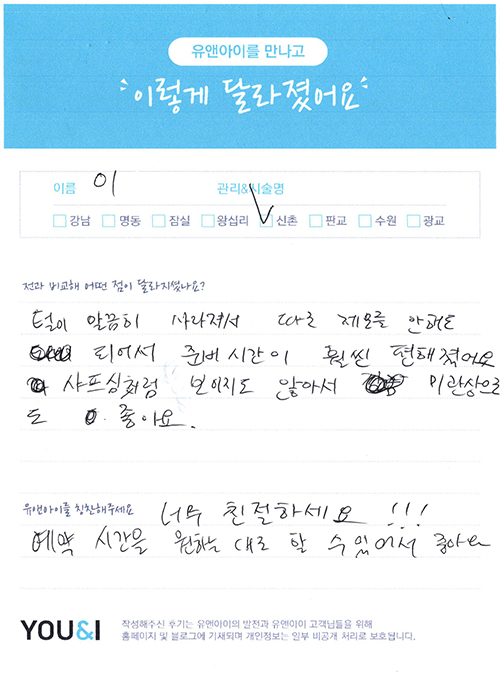 유앤아이를 만나고
이렇게 달라졌어요
이름 이 관리&시술명
강남 명동 잠실 왕십리 신촌 판교 수원 광교
전과 비교해 어떤 점이 달라지셨나요?
털이 말끔히 사라져서 따로 제모를 안해도
되어서 준비시간이 훨씬 편해졌어요
샤프심처럼 보이지도 않아서 미관상으로
도 좋아요.
유앤아이를 칭찬해주세요 너무 친절하세요 !!!
예약 시간을 원하는 대로 할 수 있어서 좋아요
YOU&I 작성해주신 후기는 유앤아이의 발전과 유앤아이 고객님들을 위해
홈페이지 및 블로그에 기재되며 개인정보는 일부 비공개 처리로 보호됩니다.